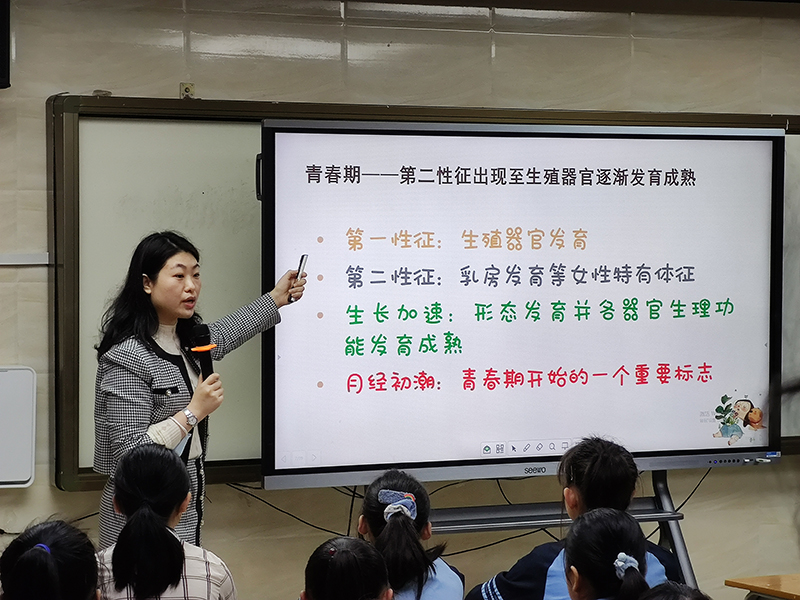 青春期——第二性征出现至生殖器官逐渐发育成熟
• 第一性征：生殖器官发育
• 第二性征：乳房发育等女性特有体征
• 生长加速：形态发育并各器官生理功
能发育成熟
• 月经初潮：青春期开始的一个重要标志
seewo